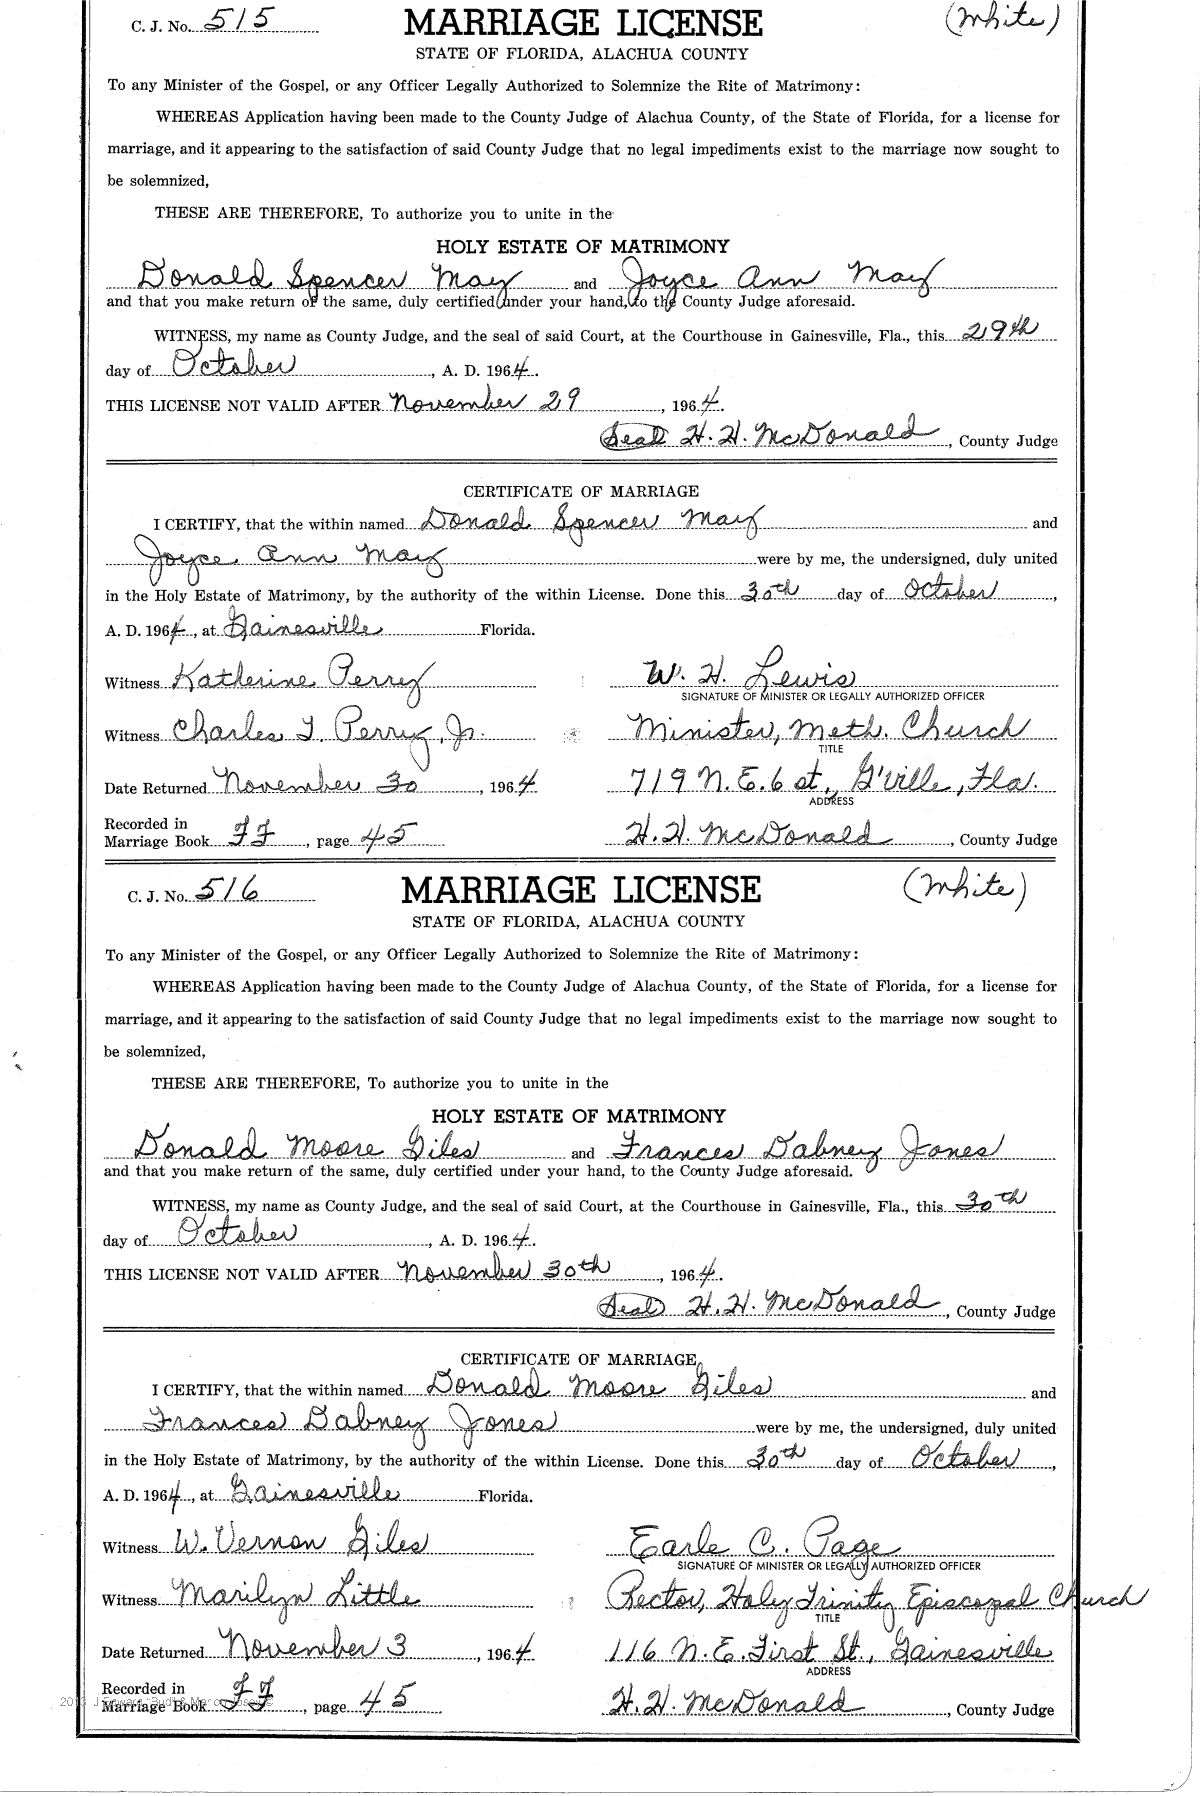 C. J. No. 515 MARRIAGE LICENSE (White)
STATE OF FLORIDA, ALACHUA COUNTY
To any Minister of the Gospel, or any Officer Legally Authorized to Solemnize the Rite of Matrimony:
WHEREAS Application having been made to the County Judge of Alachua County, of the State of Florida, for a license for
marriage, and it appearing to the satisfaction of said County Judge that no legal impediments exist to the marriage now sought to
be solemnized,
THESE ARE THEREFORE, To authorize you to unite in the
HOLY ESTATE OF MATRIMONY
Donald Spencer May and Joyce Ann May
and that you make return of the same, duly certified under your hand, to the County Judge aforesaid.
WITNESS, my name as County Judge, and the seal of said Court, at the Courthouse in Gainesville, Fla., this 29th
day of October, A. D. 1964.
THIS LICENSE NOT VALID AFTER November 29, 1964.
Seal H. H. McDonald, County Judge
CERTIFICATE OF MARRIAGE
I CERTIFY, that the within named Donald Spencer May and
Joyce Ann May were by me, the undersigned, duly united
in the Holy Estate of Matrimony, by the authority of the within License. Done this 30th day of October,
A. D. 1964, at Gainesville Florida.
Witness Katherine Perry W. H. Lewis
SIGNATURE OF MINISTER OR LEGALLY AUTHORIZED OFFICER
Witness Charles T. Perry, Jr. Minister, Meth. Church
TITLE
Date Returned November 30, 1964 719 N. E. 6 st., G'ville, Fla.
ADDRESS
Recorded in
Marriage Book FF, page 45 H. H. McDonald, County Judge
C. J. No. 516 MARRIAGE LICENSE (White)
STATE OF FLORIDA, ALACHUA COUNTY
To any Minister of the Gospel, or any Officer Legally Authorized to Solemnize the Rite of Matrimony:
WHEREAS Application having been made to the County Judge of Alachua County, of the State of Florida, for a license for
marriage, and it appearing to the satisfaction of said County Judge that no legal impediments exist to the marriage now sought to
be solemnized,
THESE ARE THEREFORE, To authorize you to unite in the
HOLY ESTATE OF MATRIMONY
Donald Moore Giles and Frances Dabney Jones
and that you make return of the same, duly certified under your hand, to the County Judge aforesaid.
WITNESS, my name as County Judge, and the seal of said Court, at the Courthouse in Gainesville, Fla., this 30th
day of October, A. D. 1964.
THIS LICENSE NOT VALID AFTER November 30th, 1964.
Seal H. H. McDonald, County Judge
CERTIFICATE OF MARRIAGE
I CERTIFY, that the within named Donald Moore Giles and
Frances Dabney Jones were by me, the undersigned, duly united
in the Holy Estate of Matrimony, by the authority of the within License. Done this 30th day of October,
A. D. 1964, at Gainesville Florida.
Witness W. Vernon Giles Earle C. Page
SIGNATURE OF MINISTER OR LEGALLY AUTHORIZED OFFICER
Witness Marilyn Little Rector, Holy Trinity Episcopal Church
TITLE
Date Returned November 3, 1964 116 N. E. First St., Gainesville
ADDRESS
Recorded in
Marriage Book FF, page 45 H. H. McDonald, County Judge